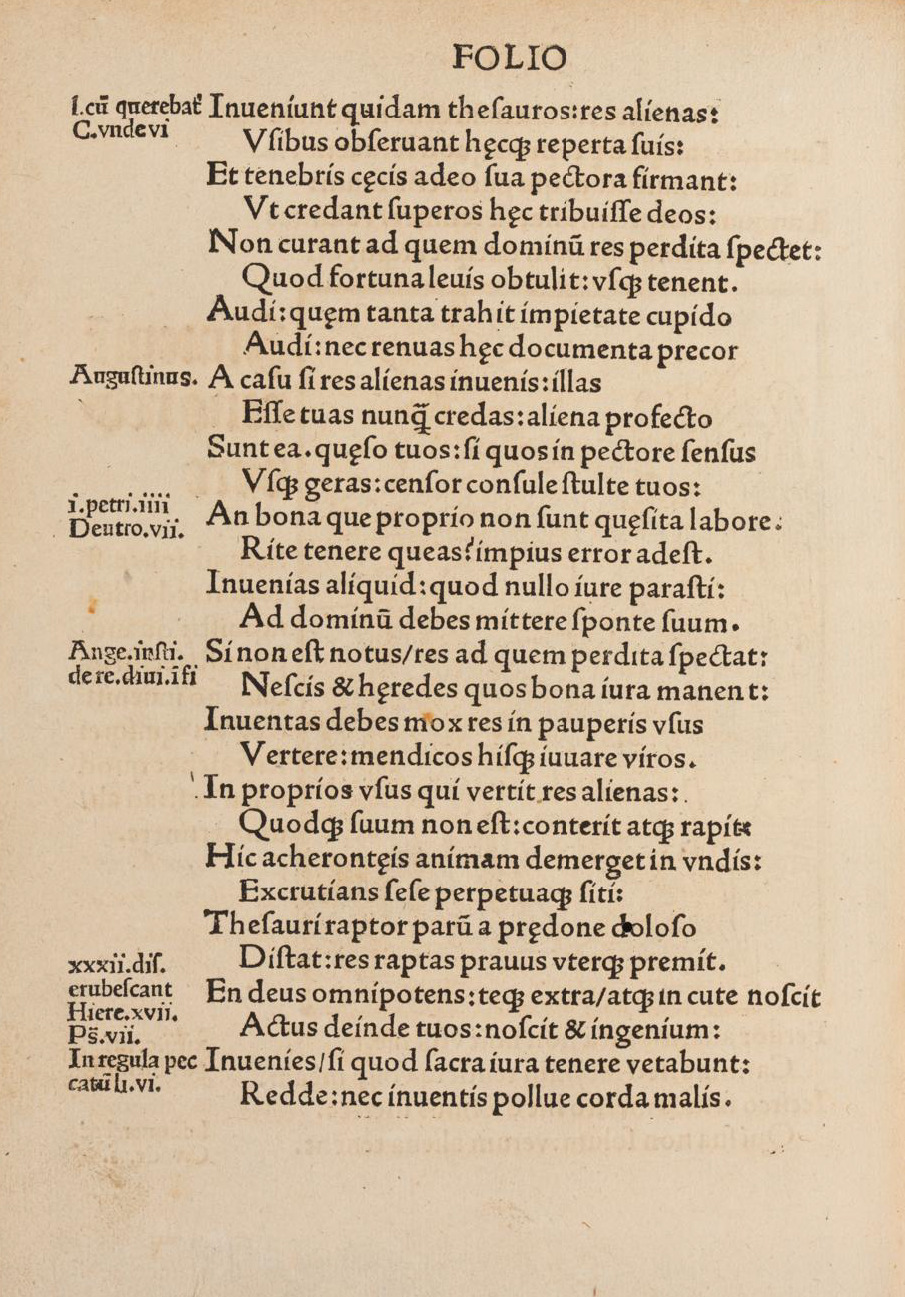 FOLIO
l.cū querebat᷑
C.vnde vi
Inueniunt quidam theſauros:res alienas:
Vſibus obſeruant hęcꝗ reperta ſuis:
Et tenebris cęcis adeo ſua pectora firmant:
Vt credant ſuperos hęc tribuiſſe deos:
Non curant ad quem dominū res perdita ſpectet:
Quod fortuna leuis obtulit:vſqꝫ tenent.
Audi:quęm tanta trahit impietate cupido
Audi:nec renuas hęc documenta precor
Auguſtinus.
A caſu ſi res alienas inuenis:illas
Eſſe tuas nunq̄ credas:aliena profecto
Sunt ea.quęſo tuos:ſi quos in pectore ſenſus
Vſqꝫ geras:cenſor conſule ſtulte tuos:
i.petri.iiii
Deutro.vii.
An bona que proprio non ſunt quęſita labore.
Rite tenere queas?impius error adeſt.
Inuenias aliquid:quod nullo iure paraſti:
Ad dominū debes mittere ſponte ſuum.
Ange.inſti.
de re.diui.iſi
Si non eſt notus/res ad quem perdita ſpectat:
Neſcis & hęredes quos bona iura manent:
Inuentas debes mox res in pauperis vſus
Vertere:mendicos hiſqꝫ iuuare viros.
In proprios vſus qui vertit res alienas:
Quodqꝫ ſuum non eſt:conterit atqꝫ rapit:
Hic acherontęis animam demerget in vndis:
Excrutians ſeſe perpetuaqꝫ ſiti:
Theſauri raptor parū a prędone doloſo
Diſtat:res raptas prauus vterqꝫ premit.
xxxii.diſ.
erubeſcant
Hiere.xvii.
Ps̄.vii.
En deus omnipotens:teqꝫ extra/atqꝫ in cute noſcit
Actus deinde tuos:noſcit & ingenium:
In regula pec
catū li.vi.
Inuenies/ſi quod ſacra iura tenere vetabunt:
Redde:nec inuentis pollue corda malis.